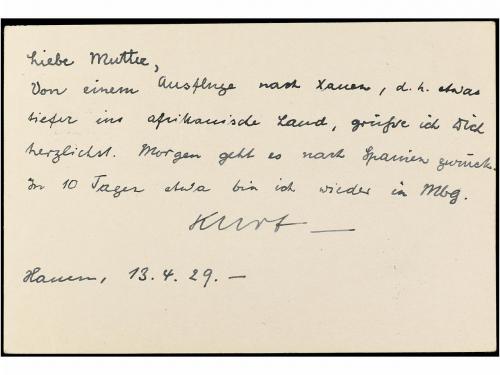 Liebe Mutter,
Von einem Ausfluge nach Xauen, d.h. etwas
tiefer ins afrikanische Land, grüsse ich Dich
herzlichst. Morgen geht es nach Spanien zurück.
In 10 Tagen etwa bin ich wieder in Mbg.
Kurt —
Xauen, 13.4.29.—